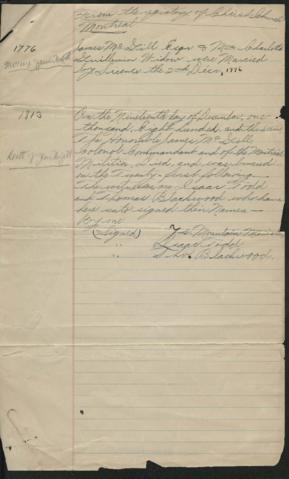 From the registry of Christ Church
Montreal
1776
James McGill Esqr & Mrs Charlotte
Guillimin Widow were Married
by Licence the 2nd Decr 1776
1813
On the Nineteenth day of December, one
thousand, Eight hundred, and thirteen
The Honorable James McGill
Colonel Commandant of the Montreal
Militia, died, and was buried
on the Twenty-first following
The witnesses being Isaac Todd
and Thomas Blackwood who have
here unto signed their Names —
By me
(Signed) Mountain
" Isaac Todd
" Thos. Blackwood.